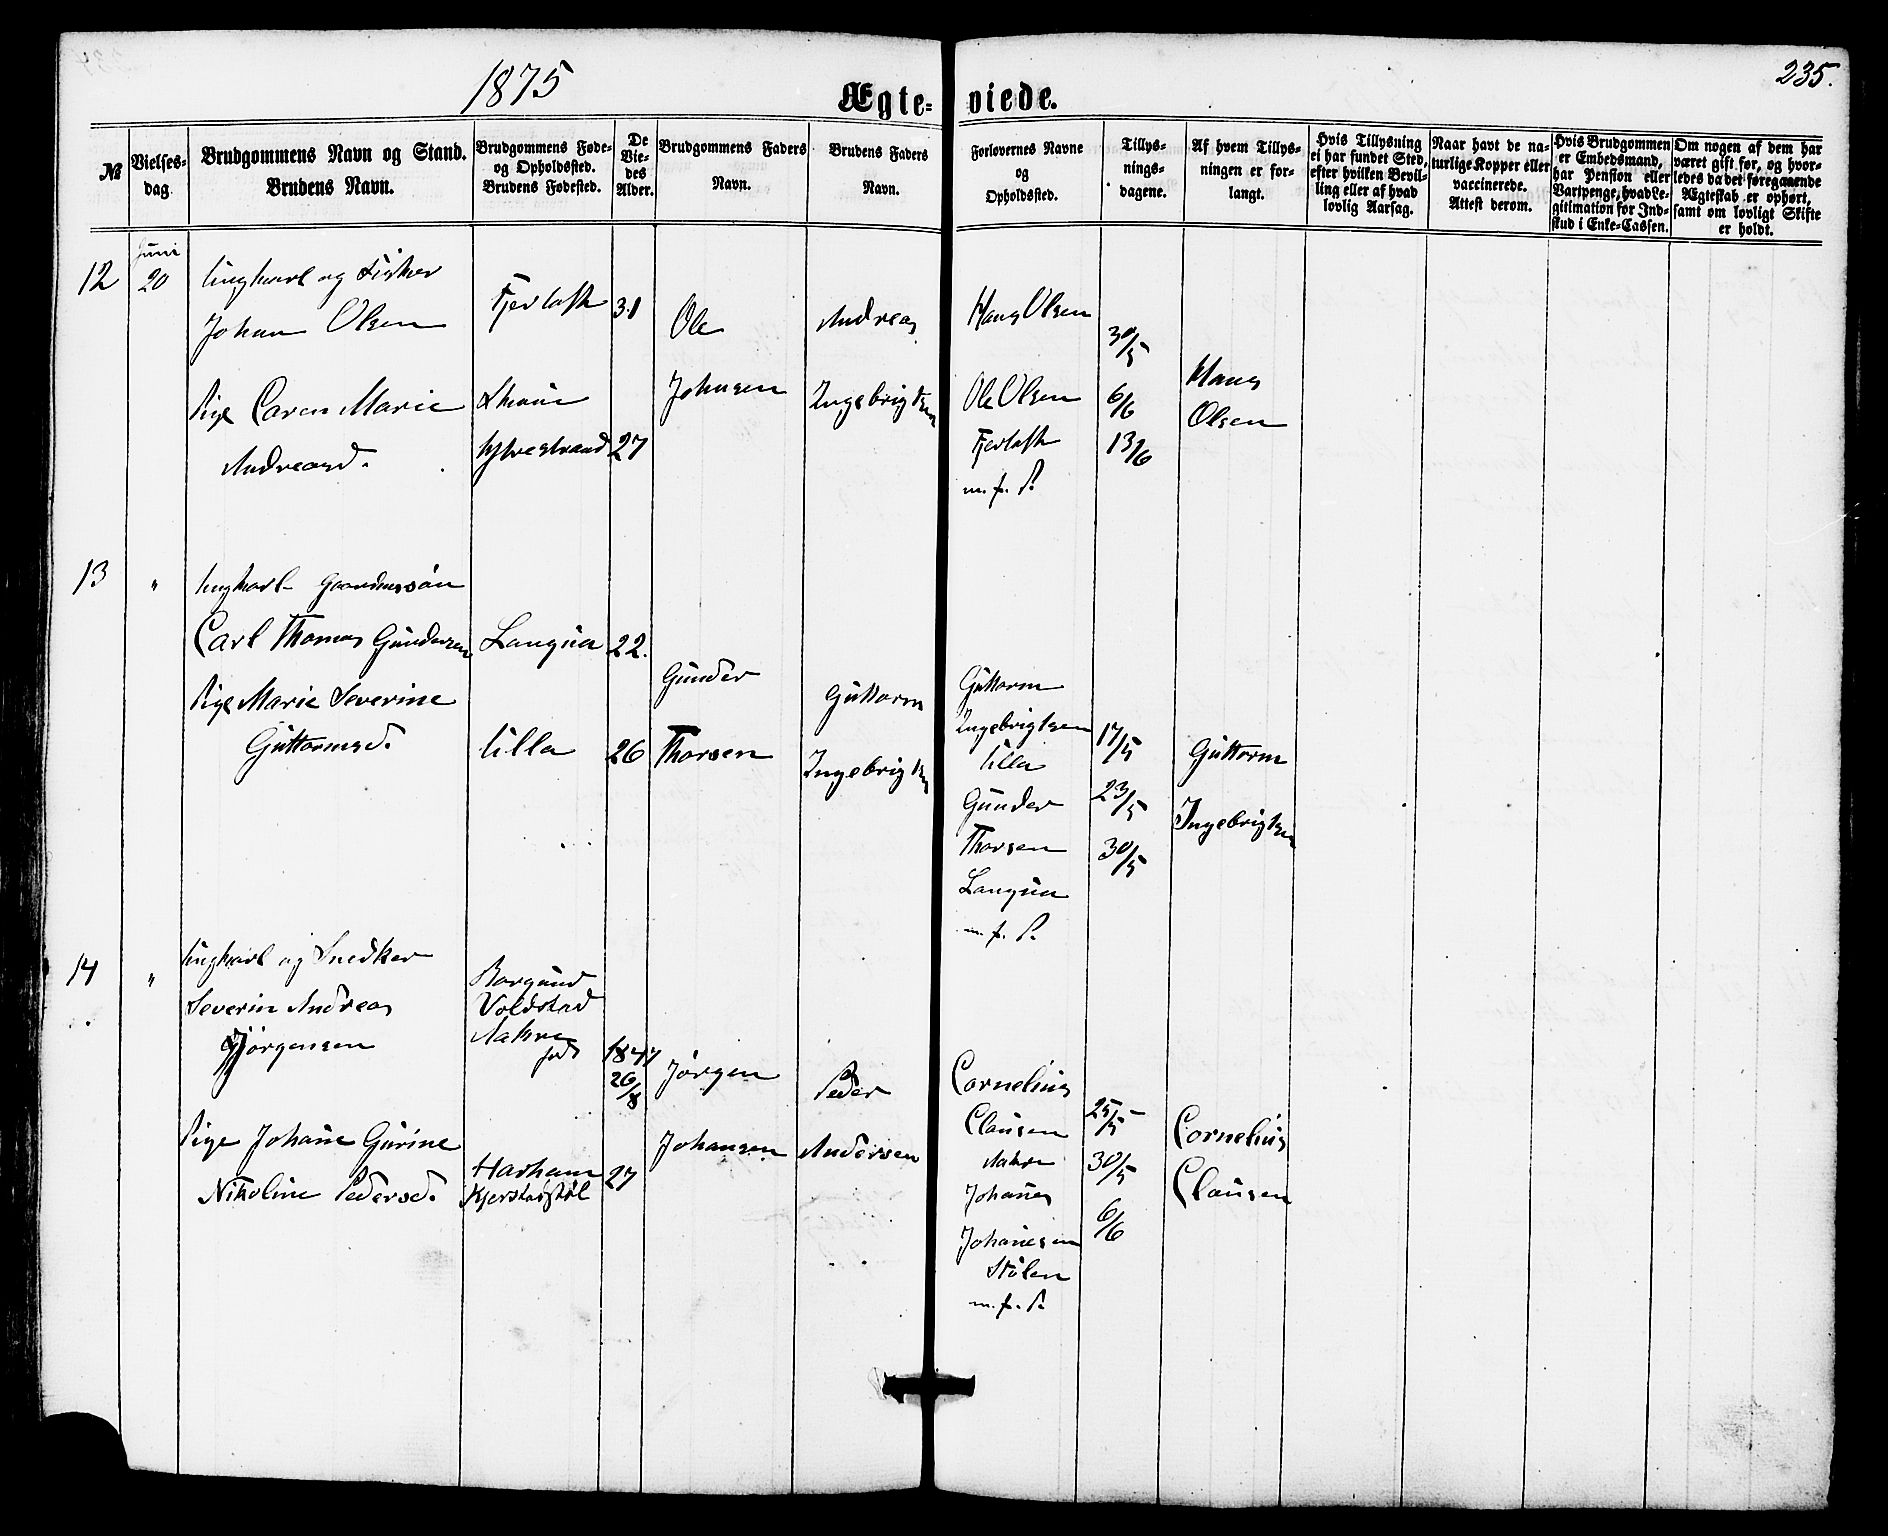 1875
Ægte-
viede.
235.
No
Vielses-
dag.
Brudgommens Navn og Stand.
Brudens Navn.
Brudgommens Føde-
og Opholdssted.
Brudens Fødested.
De
Vie-
des
Alder.
Brudgommens Faders
Navn.
Brudens Faders
Navn.
Forlovernes Navne
og
Opholdssted.
Tillys-
nings-
dagene.
Af hvem Tillys-
ningen er for-
langt.
Hvis Tillysning
ei har fundet Sted,
efter hvilken Bevil-
ling eller af hvad
lovlig Aarsag.
Naar havt de na-
turlige Kopper eller
vaccinerede.
Attest derom.
Hvis Brudgommen
er Embedsmand,
har Pension eller
Vartpenge, hvad Le-
gitimation for Ind-
skud i Enke-Cassen.
Om nogen af dem har
været gift før, og hvor-
ledes da det foregaaende
Ægteskab er ophørt,
samt om lovligt Skifte
er holdt.
12
Juni
20
Ungkarl og Fisker
Johan Olsen
Fjertoft
31
Ole
Johnsen
Andreas
Ingebrigtsen
Hans Olsen
Ole Olsen
Fjertoft
m. f. P.
30/5
6/6
13/6
Hans
Olsen
Pige Caren Marie
Andreasd.
27
13
"
Ungkarl Gaardmssön
Carl Thomas Gundersen
Longva
22.
Gunder
Thorsen
Guttorm
Ingebrigtsen
Guttorm
Ingebrigtsen
Ulla
Gunder
Thorsen
Longva
m. f. P.
17/5
23/5
30/5
Guttorm
Ingebrigtsen
Pige Marie Severine
Guttormsd.
Ulla
26
14
"
Ungkarl og Snedker
Severin Andreas
Jörgensen
Borgund
Voldstad
Aakre
1847
26/8
Jörgen
Johansen
Peder
Andersen
Cornelius
Clausen
Aakre
Johanes
Johanesen
Stölen
m. f. P.
25/5
30/5
6/6
Cornelius
Clausen
Pige Johane Gurine
Nikoline Pedersd.
Harham
Kjerstadstöl
27